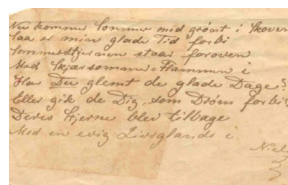 Nu kommer Sommer med grønt i Skoven
saa er min glade Tid forbi
Sommerstjernen staar foroven
Med Flammen i
Har Du glemt de glade Dage?
Eller gik de Dig som Drøm forbi?
Deres Kjerne blev tilbage
Med en evig Livsglands i
Niels